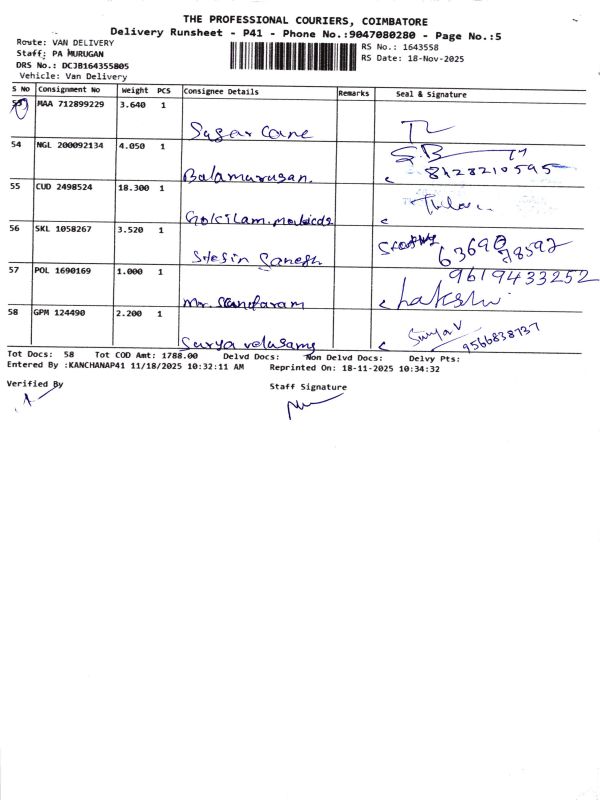 THE PROFESSIONAL COURIERS, COIMBATORE
Delivery Runsheet - P41 - Phone No.:9047080280 - Page No.:5
Route: VAN DELIVERY
Staff: PA MURUGAN
DRS No.: DCJB164355805
Vehicle: Van Delivery
RS No.: 1643558
RS Date: 18-Nov-2025
S No Consignment No Weight PCS Consignee Details Remarks Seal & Signature
53 MAA 712899229 3.640 1
Sugar Cane
54 NGL 200092134 4.050 1
Balamurugan. 8428210595
55 CUD 2498524 18.300 1
Gokilam.
56 SKL 1058267 3.520 1
Ganesh 63690 78592
57 POL 1690169 1.000 1 9619433252
Mr.
58 GPM 124490 2.200 1
Surya V
Surya velusamy 9566838737
Tot Docs: 58 Tot COD Amt: 1788.00 Delvd Docs: Non Delvd Docs: Delvy Pts:
Entered By :KANCHANAP41 11/18/2025 10:32:11 AM Reprinted On: 18-11-2025 10:34:32
Verified By Staff Signature